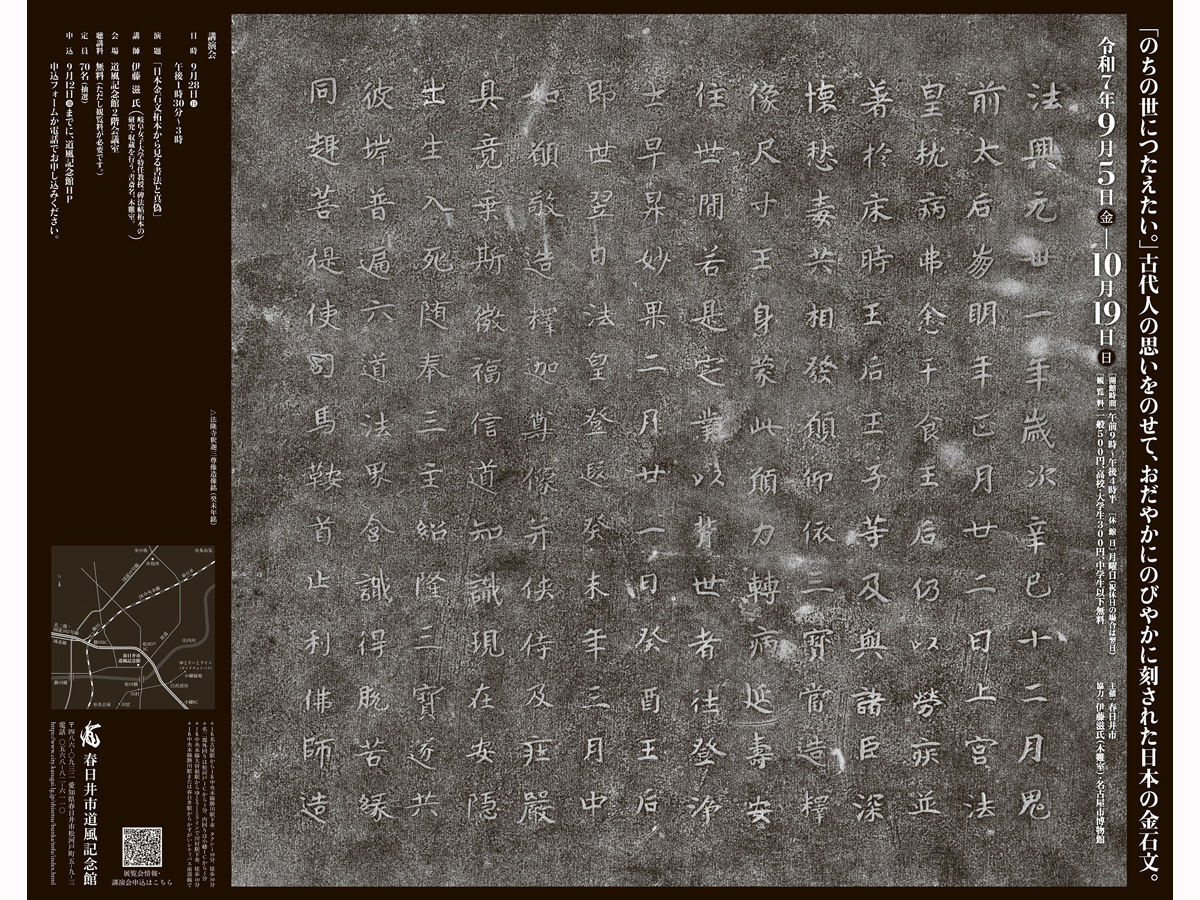 「のちの世につたえたい。」古代人の思いをのせて、おだやかにのびやかに刻された日本の金石文。
令和7年9月5日(金)―10月19日(日)
［開館時間］午前9時～午後4時半 ［休館日］月曜日(祝休日の場合は翌日)
［観覧料］一般500円、高校・大学生300円、中学生以下無料
主催：春日井市
協力：伊藤滋氏(木雞室)・名古屋市博物館
法興元卅一年歳次辛巳十二月鬼
前太后崩明年正月廿二日上宮法
皇枕病弗悆干食王后仍以勞疾並
著於床時王后王子等及與諸臣深
懐愁毒共相發願仰依三寳當造釋
像尺寸王身蒙此願力轉病延壽安
住世間若是定業以背世者往登浄
土早昇妙果二月廿一日癸酉王后
即世翌日法皇登遐癸未年三月中
如願敬造釋迦尊像并侠侍及荘嚴
具竟乗斯微福信道知識現在安隠
出生入死随奉三主紹隆三寳遂共
彼岸普遍六道法界含識得脱苦縁
同趣菩提使司馬鞍首止利佛師造
講演会
日時 9月28日(日)
午後1時30分～3時
演題 「日本金石文拓本から見る書法と真偽」
講師 伊藤 滋 氏(岐阜女子大学特任教授。碑法帖拓本の
研究・収蔵を行う。書斎名、木雞室。)
会場 道風記念館2階会議室
聴講料 無料(ただし観覧料が必要です。)
定員 70名(抽選)
申込 9月12日(金)までに、道風記念館HP
申込フォームか電話でお申し込みください。
▷法隆寺釈迦三尊像造像銘(癸未年銘)
春日井市
道風記念館
春日井市道風記念館
〒四八六-〇九三二 愛知県春日井市松河戸町五-九-三
電話 〇五六八-八二-六一一〇
展覧会情報・
講演会申込はこちら